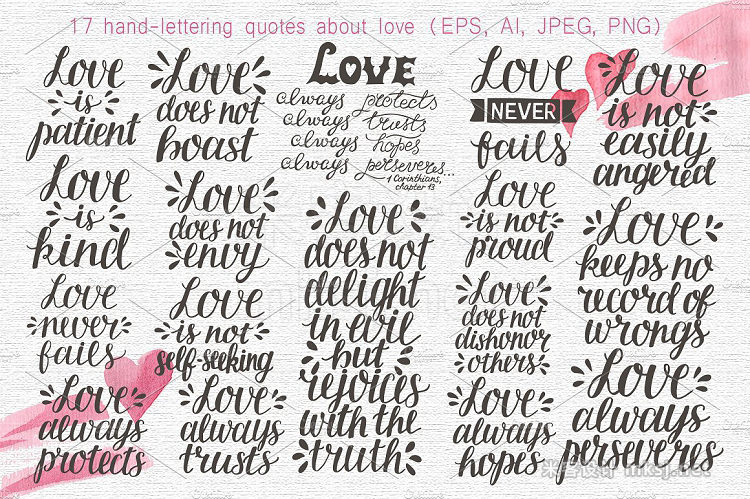 17 hand-lettering quotes about love (EPS, AI, JPEG, PNG)
Love
is
patient
Love
is
kind
Love
never
fails
Love
always
protects
Love
does not
boast
Love
does not
envy
Love
is not
self-seeking
Love
always
trusts
Love
always protects
always trusts
always hopes
always perseveres...
1 Corinthians,
chapter 13
Love
does not
delight
in evil
but
rejoices
with the
truth
Love
NEVER
fails
Love
is not
proud
Love
does not
dishonor
others
Love
always
hopes
Love
is not
easily
angered
Love
keeps no
record of
wrongs
Love
always
perseveres
米客设计 mksj.net